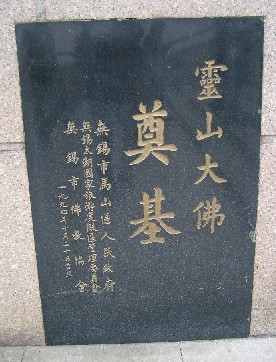 靈山大佛
奠基
無錫市馬山區人民政府
無錫太湖國家旅游度假區管理委員會
無錫市佛教協會
一九九四年十月二十日